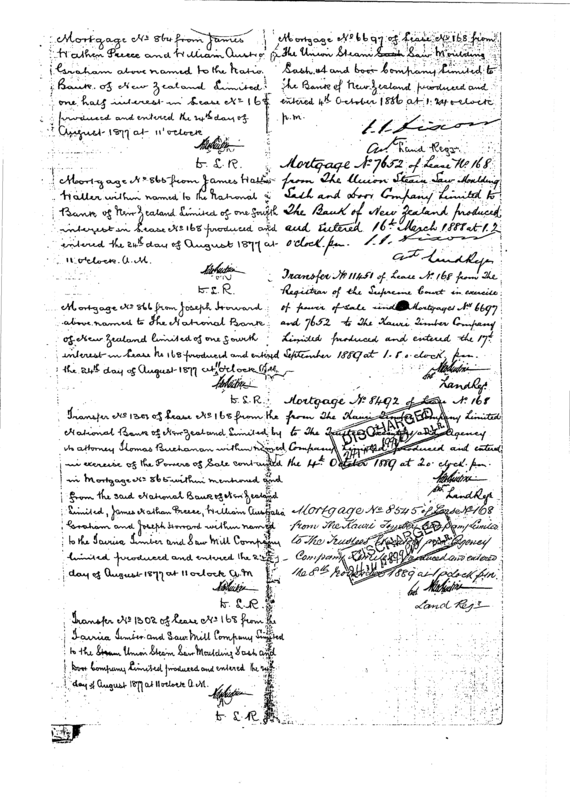 Mortgage No 864 from James
Nathan Preece and William Austra
Graham above named to the Natio
Bank of New Zealand Limited
one half interest in Lease No 168
produced and entered the 24th day of
August 1877 at 11 o'clock
D. L. R.
Mortgage No 865 from James
Waller within named to the National
Bank of New Zealand Limited of one fourth
interest in Lease No 168 produced and
entered the 24th day of August 1877 at
11 o'clock A.M.
D. L. R.
Mortgage No 866 from Joseph Howard
above named to The National Bank
of New Zealand Limited of one fourth
interest in Lease No 168 produced and entered
the 24th day of August 1877 at 11 o'clock
D. L. R.
Transfer No 1301 of Lease No 168 from the
National Bank of New Zealand Limited by
its attorney Thomas Buchanan within named
in exercise of the Powers of Sale contained
in Mortgage No 865 within mentioned and
from the said National Bank of New Zealand
Limited, James Nathan Preece, William Australia
Graham and Joseph Howard within named
to the Tairua Timber and Saw Mill Company
Limited produced and entered the
day of August 1877 at 11 o'clock A.M
D. L. R.
Transfer No 1302 of Lease No 168 from the
Tairua Timber and Saw Mill Company Limited
to the Union Steam Saw Moulding Sash and
Door Company Limited produced and entered the
day of August 1877 at 11 o'clock A.M.
D. L. R.
Mortgage No 6697 of Lease No 168 from
The Union Steam Saw Moulding
Sash and Door Company Limited to
the Bank of New Zealand produced and
entered 4th October 1886 at 1.24 o'clock
p.m.
Land Regr
Mortgage No 7652 of Lease No 168
from The Union Steam Saw Moulding
Sash and Door Company Limited to
The Bank of New Zealand produced
and entered 16th March 1888 at 1.2
o'clock p.m.
Land Regr
Transfer No 11451 of Lease No 168 from The
Registrar of the Supreme Court in exercise
of power of sale Mortgages Nos 6697
and 7652 to The Kauri Timber Company
Limited produced and entered the 17th
September 1889 at 1.8 o'clock p.m.
Land Regr
Mortgage No 8492 of Lease No 168
from The Kauri Timber Company Limited
to The Agency
Company Limited produced and entered
the 4th October 1889 at 2 o'clock p.m.
DISCHARGED
D.L.R.
Land Regr
Mortgage No 8545 of Lease No 168
from The Kauri Timber Company Limited
to The Trustees Agency
Company produced and entered
the 8th November 1889 at o'clock p.m.
DISCHARGED
D.L.R.
Land Regr